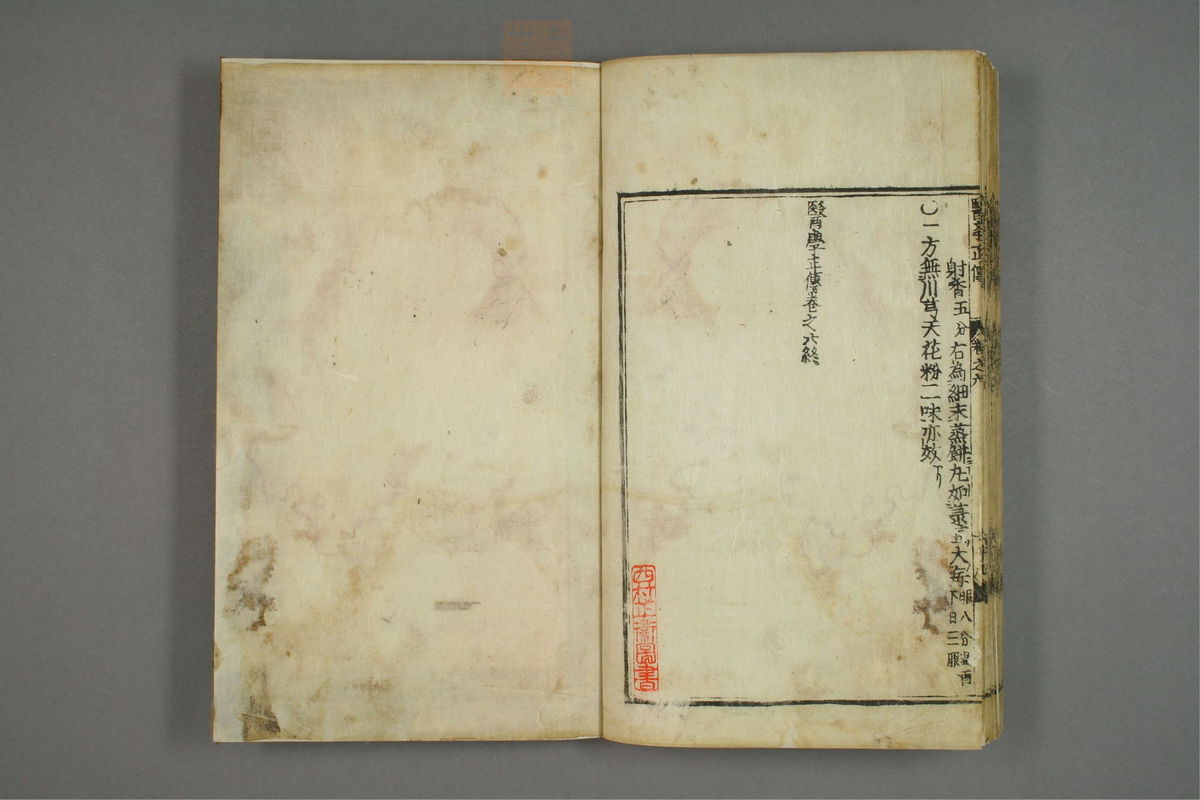 醫学正傳 卷之六
射香五分右為細末蒸餅丸如菉豆大每服八分温酒下日三服
〇一方無川芎天花粉二味亦效
醫學正傳卷之六終
西村正衛圖書